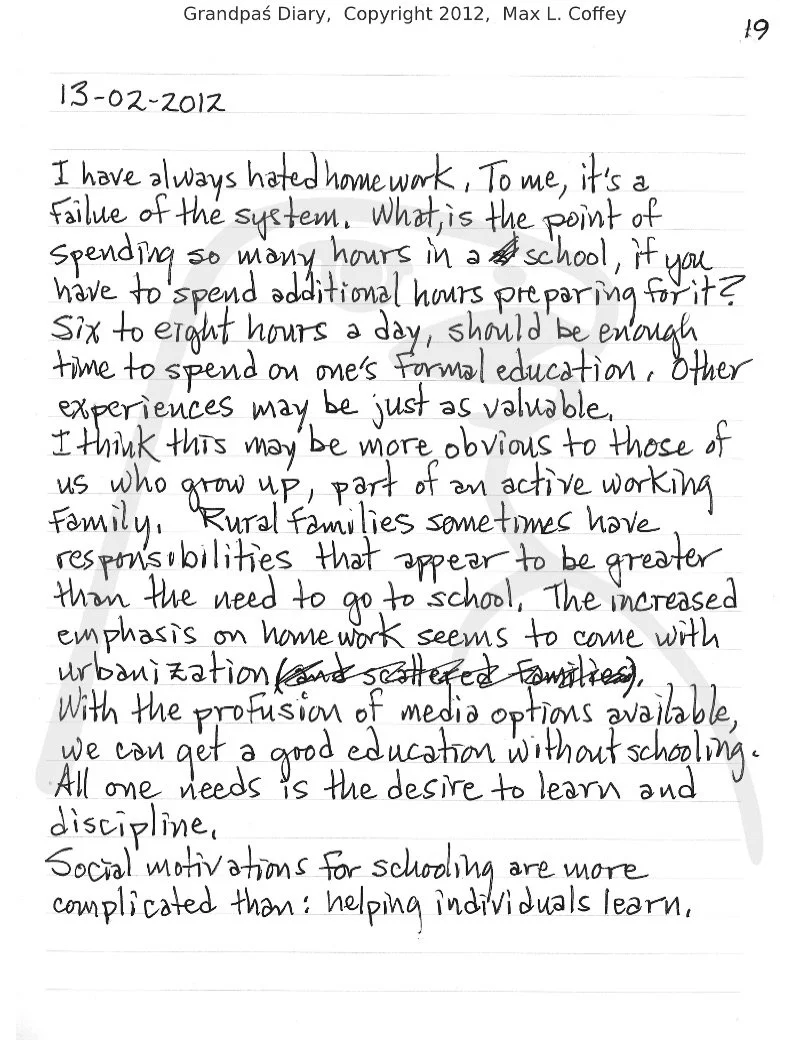 Grandpaś Diary, Copyright 2012, Max L. Coffey
19
13-02-2012
I have always hated homework. To me, it's a
failue of the system. What, is the point of
spending so many hours in a school, if you
have to spend additional hours preparing for it?
Six to eight hours a day, should be enough
time to spend on one's formal education. Other
experiences may be just as valuable.
I think this may be more obvious to those of
us who grow up, part of an active working
family. Rural families sometimes have
responsibilities that appear to be greater
than the need to go to school. The increased
emphasis on homework seems to come with
urbanization (and scattered families).
With the profusion of media options available,
we can get a good education without schooling.
All one needs is the desire to learn and
discipline.
Social motivations for schooling are more
complicated than: helping individuals learn.